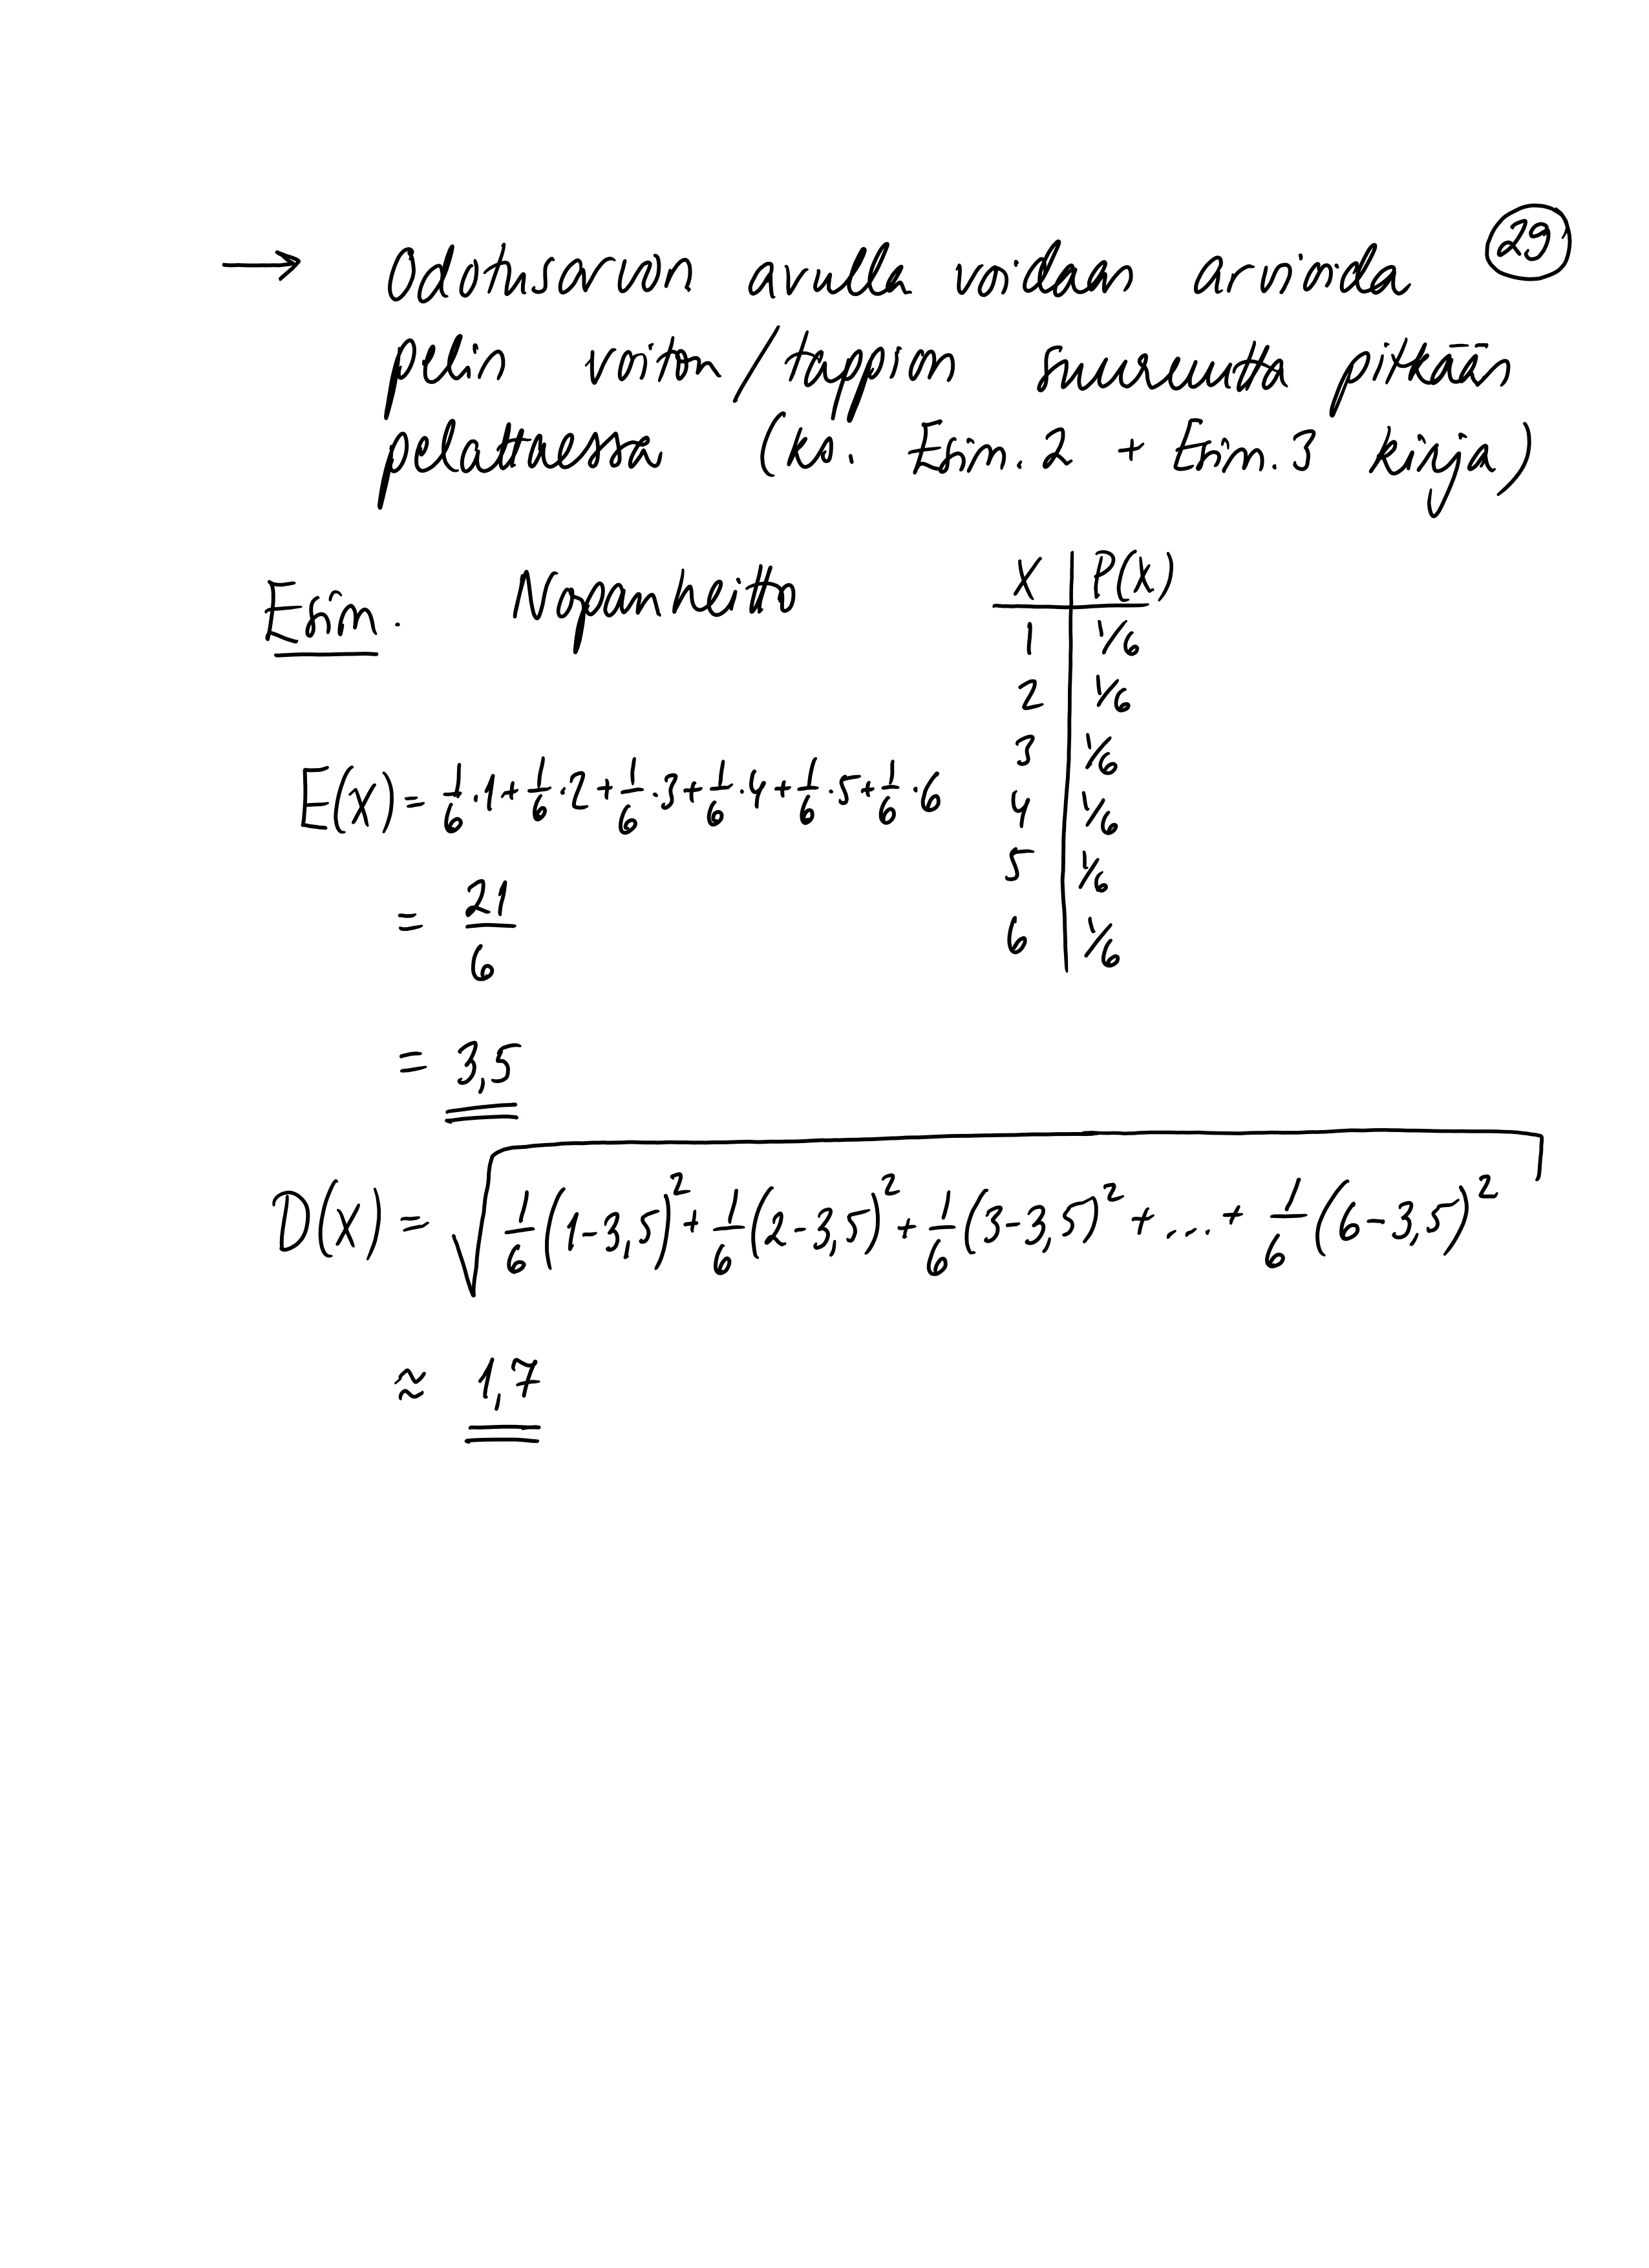 → Odotusarvon avulla voidaan arvioida (29)
pelin voiton/tappion suuruutta pitkään
pelattaessa (ks. Esim. 2 + Esim. 3 kirja)
Esim. Nopanheitto
X | P(X)
1 | 1/6
2 | 1/6
3 | 1/6
4 | 1/6
5 | 1/6
6 | 1/6
E(X) = 1/6 · 1 + 1/6 · 2 + 1/6 · 3 + 1/6 · 4 + 1/6 · 5 + 1/6 · 6
= 21/6
= 3,5
D(X) = √(1/6 (1-3,5)² + 1/6 (2-3,5)² + 1/6 (3-3,5)² + ... + 1/6 (6-3,5)²)
≈ 1,7